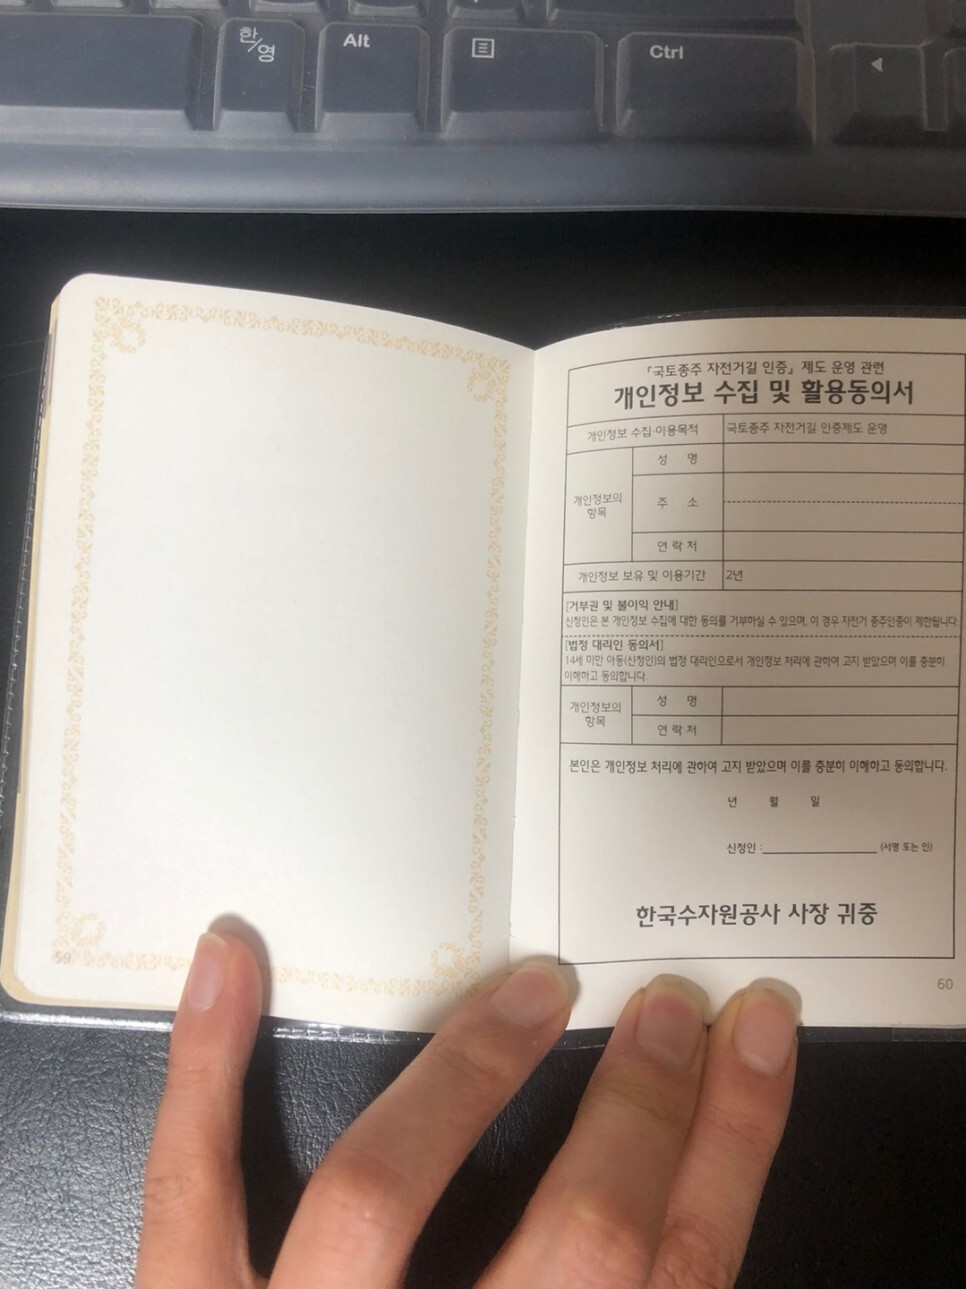 한/영
Alt
Ctrl
「국토종주 자전거길 인증」 제도 운영 관련
개인정보 수집 및 활용동의서
개인정보 수집·이용목적 국토종주 자전거길 인증제도 운영
개인정보의 항목
성 명
주 소
연 락 처
개인정보 보유 및 이용기간 2년
[거부권 및 불이익 안내]
신청인은 본 개인정보 수집에 대한 동의를 거부하실 수 있으며, 이 경우 자전거 종주인증이 제한됩니다
[법정 대리인 동의서]
14세 미만 아동(신청인)의 법정 대리인으로서 개인정보 처리에 관하여 고지 받았으며 이를 충분히
이해하고 동의합니다
개인정보의 항목
성 명
연 락 처
본인은 개인정보 처리에 관하여 고지 받았으며 이를 충분히 이해하고 동의합니다.
년 월 일
신청인 : (서명 또는 인)
한국수자원공사 사장 귀중
59
60